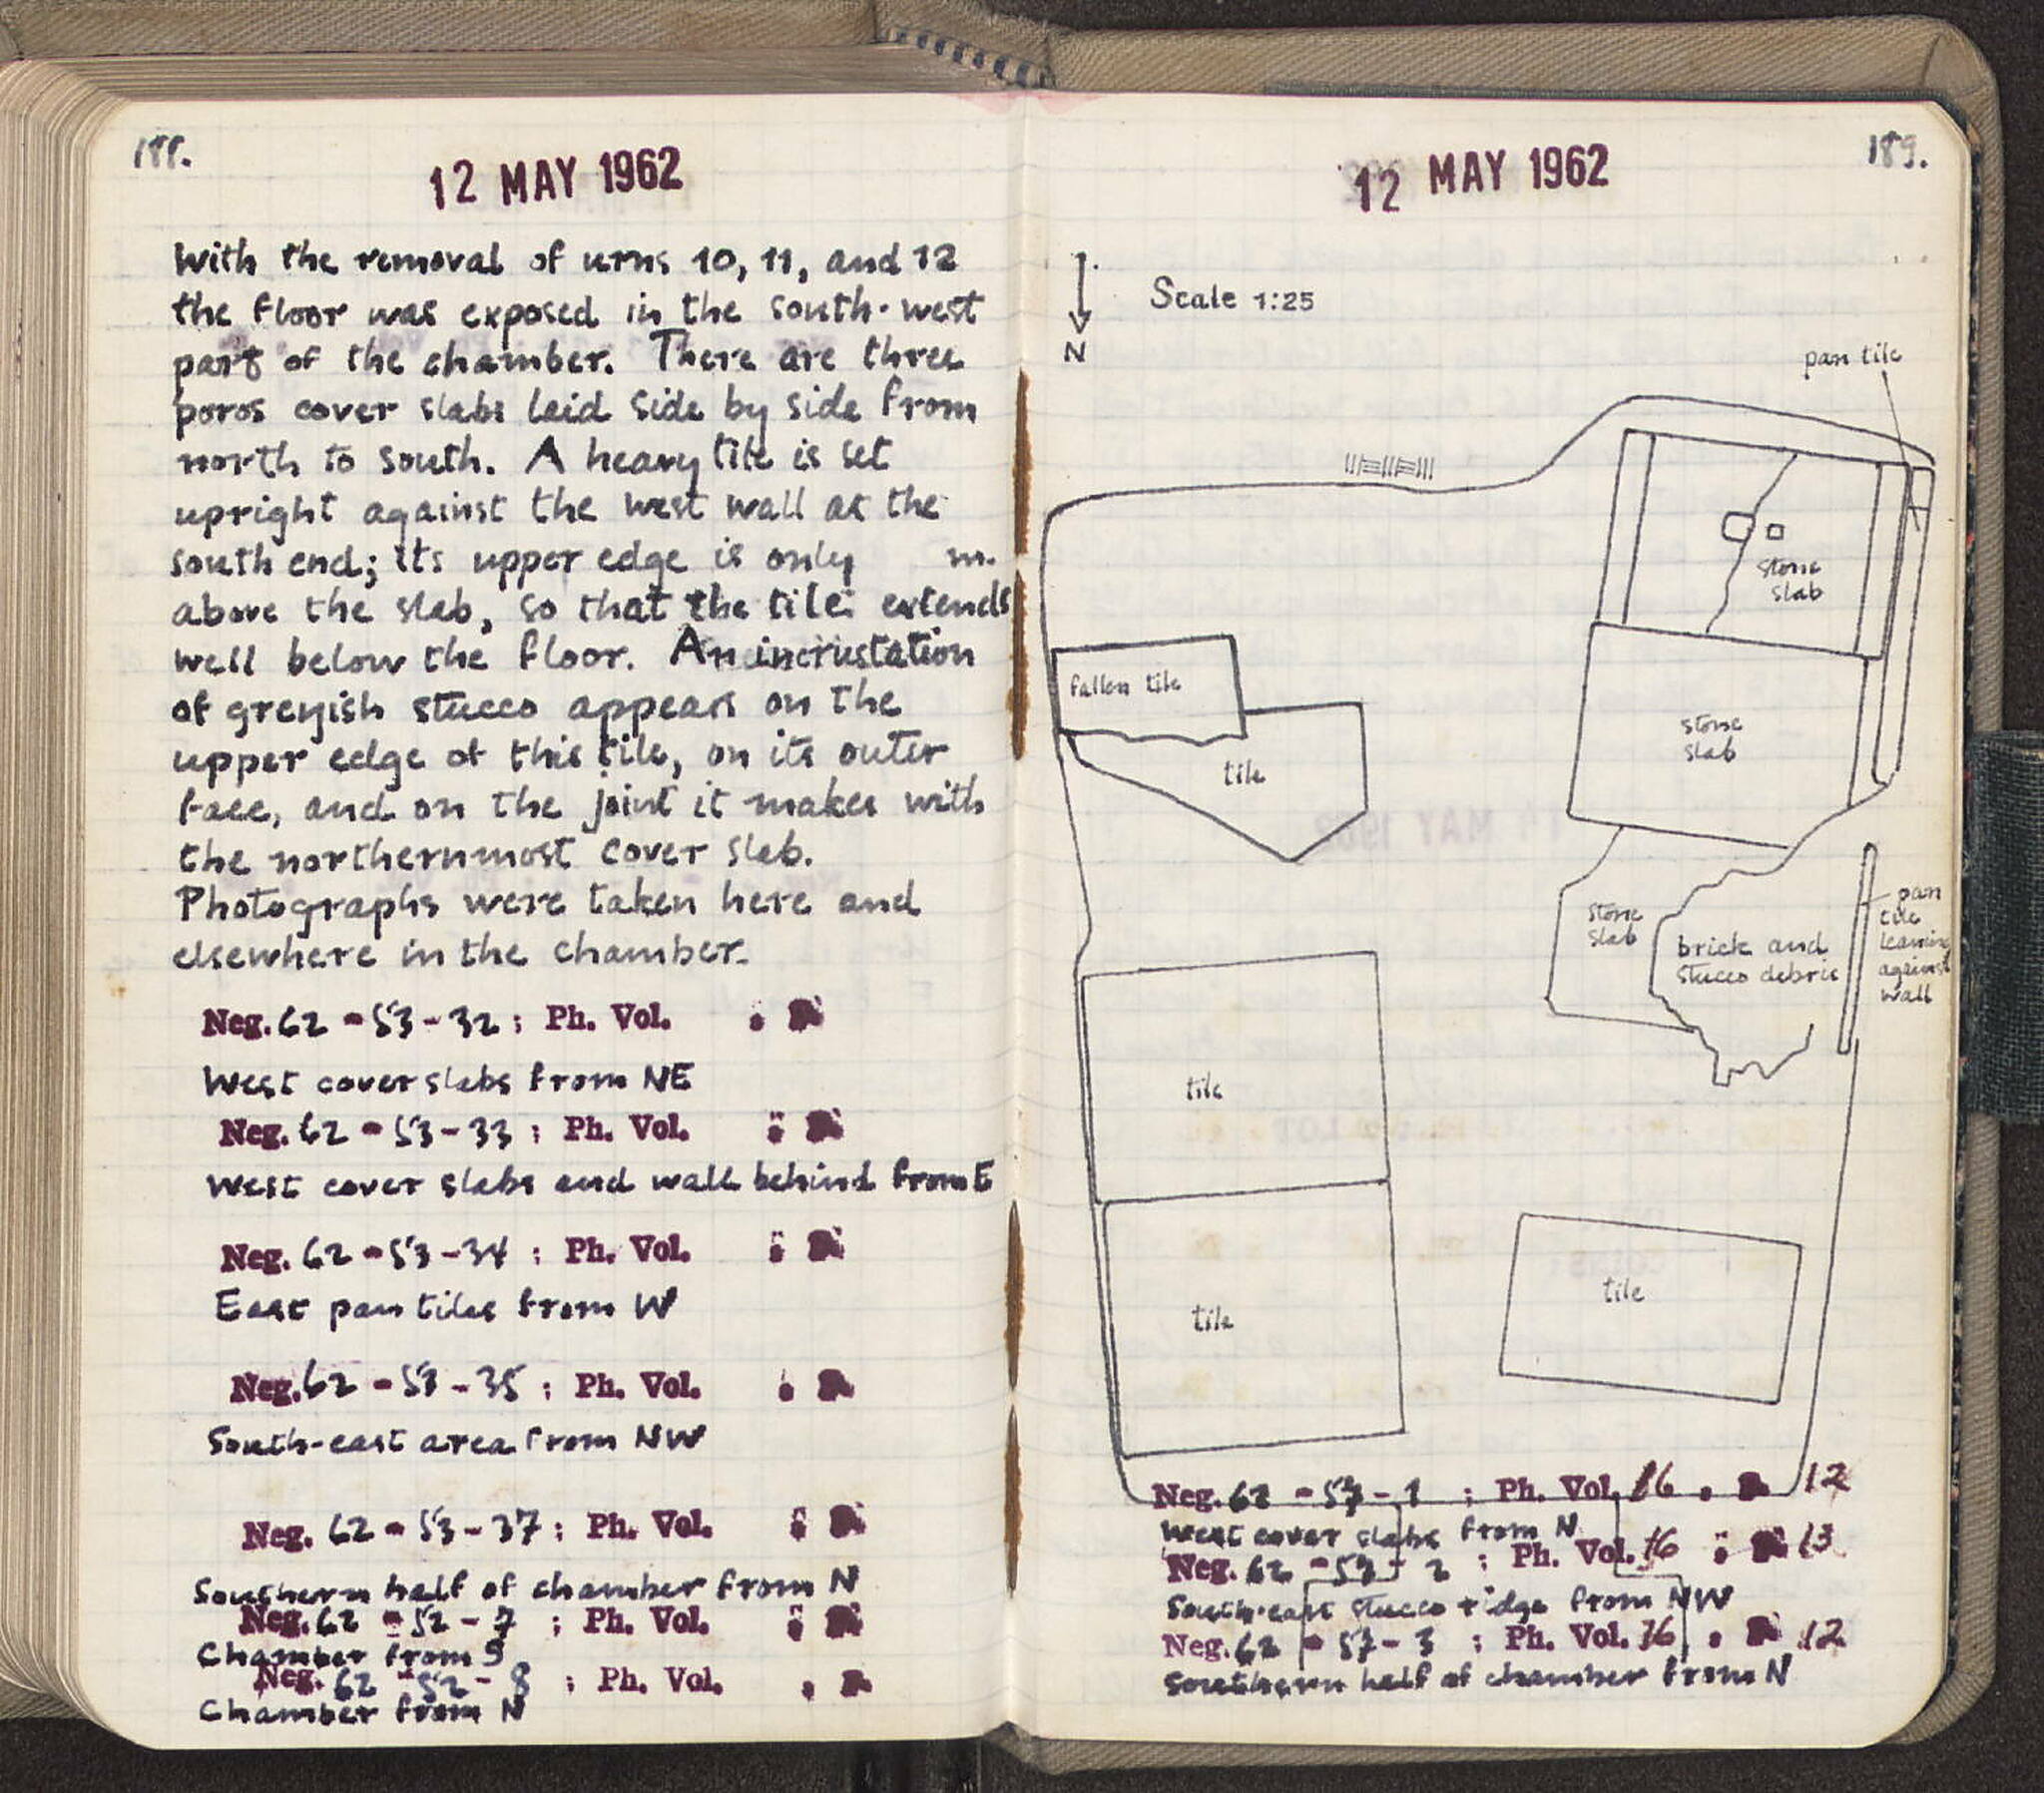 188.
12 MAY 1962
With the removal of urns 10, 11, and 12
the floor was exposed in the south-west
part of the chamber. There are three
poros cover slabs laid side by side from
north to south. A heavy tile is set
upright against the west wall at the
south end; its upper edge is only m.
above the slab, so that the tile extends
well below the floor. An incrustation
of greyish stucco appears on the
upper edge of this tile, on its outer
face, and on the joint it makes with
the northernmost cover slab.
Photographs were taken here and
elsewhere in the chamber.
Neg. 62 - 53 - 32 ; Ph. Vol.
West cover slabs from NE
Neg. 62 - 53 - 33 ; Ph. Vol.
West cover slabs and wall behind from E
Neg. 62 - 53 - 34 ; Ph. Vol.
East pan tiles from W
Neg. 62 - 53 - 35 ; Ph. Vol.
South-east area from NW
Neg. 62 - 53 - 37 ; Ph. Vol.
Southern half of chamber from N
Neg. 62 - 52 - 7 ; Ph. Vol.
Chamber from S
Neg. 62 - 52 - 8 ; Ph. Vol.
Chamber from N
189.
12 MAY 1962
Scale 1:25
N
pan tile
stone
slab
fallen tile
stone
slab
tile
stone
slab
brick and
stucco debris
pan
tile
leaning
against
wall
tile
tile
tile
Neg. 62 - 57 - 1 ; Ph. Vol. 16 12
West cover slabs from N
Neg. 62 - 57 - 2 ; Ph. Vol. 16 13
South-east stucco ridge from NW
Neg. 62 - 57 - 3 ; Ph. Vol. 16 12
Southern half of chamber from N